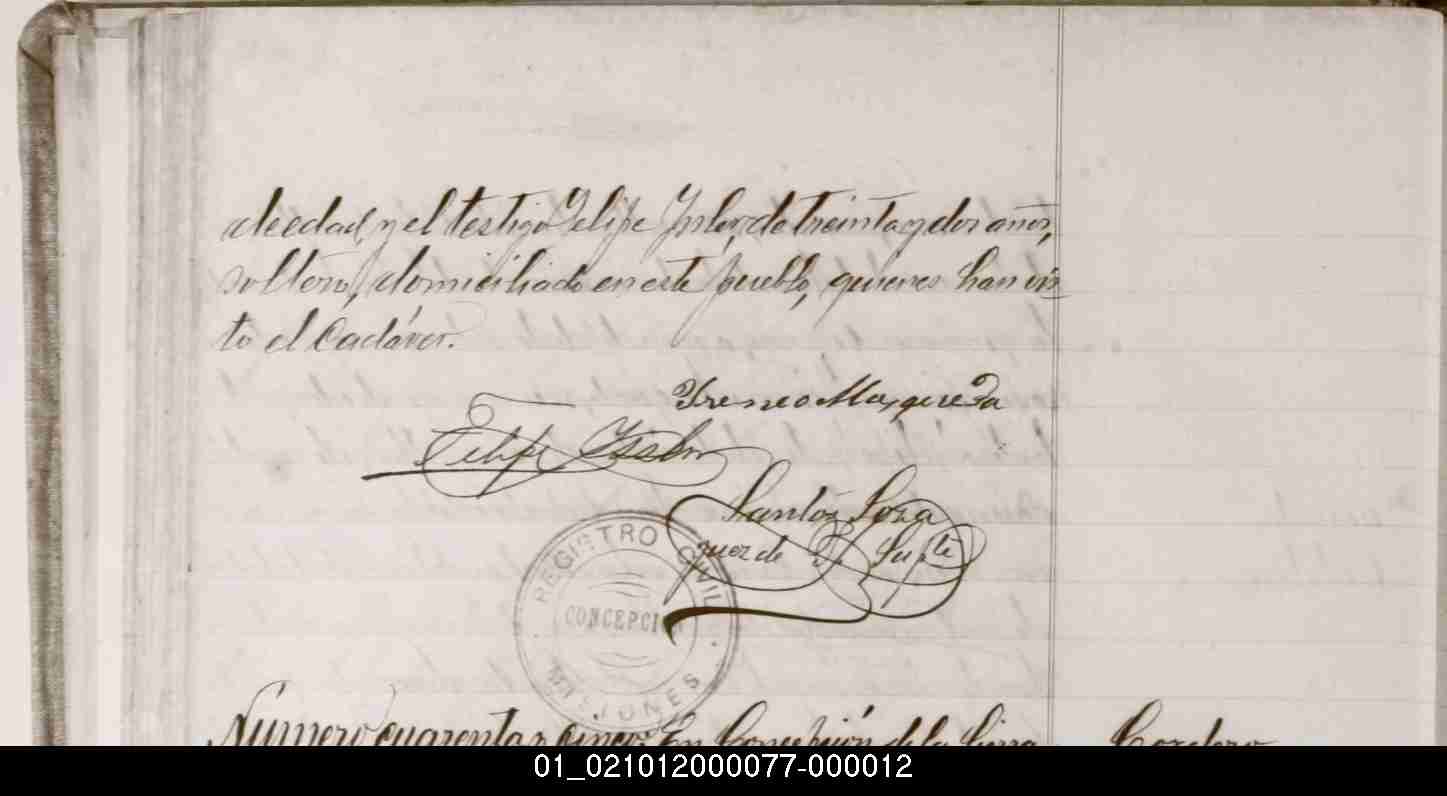 de edad, y el testigo Felipe Isler, de treinta y dos años,
soltero, domiciliado en este pueblo, quienes han vis
to el Cadáver.
Yreneo Masqueda
Felipe Issler
Santos Soza
Juez de P. Supte
REGISTRO CIVIL
CONCEPCION
MISIONES
Número cuarenta y cinco. En Concepción de la Sierra
Cordero
01_021012000077-000012